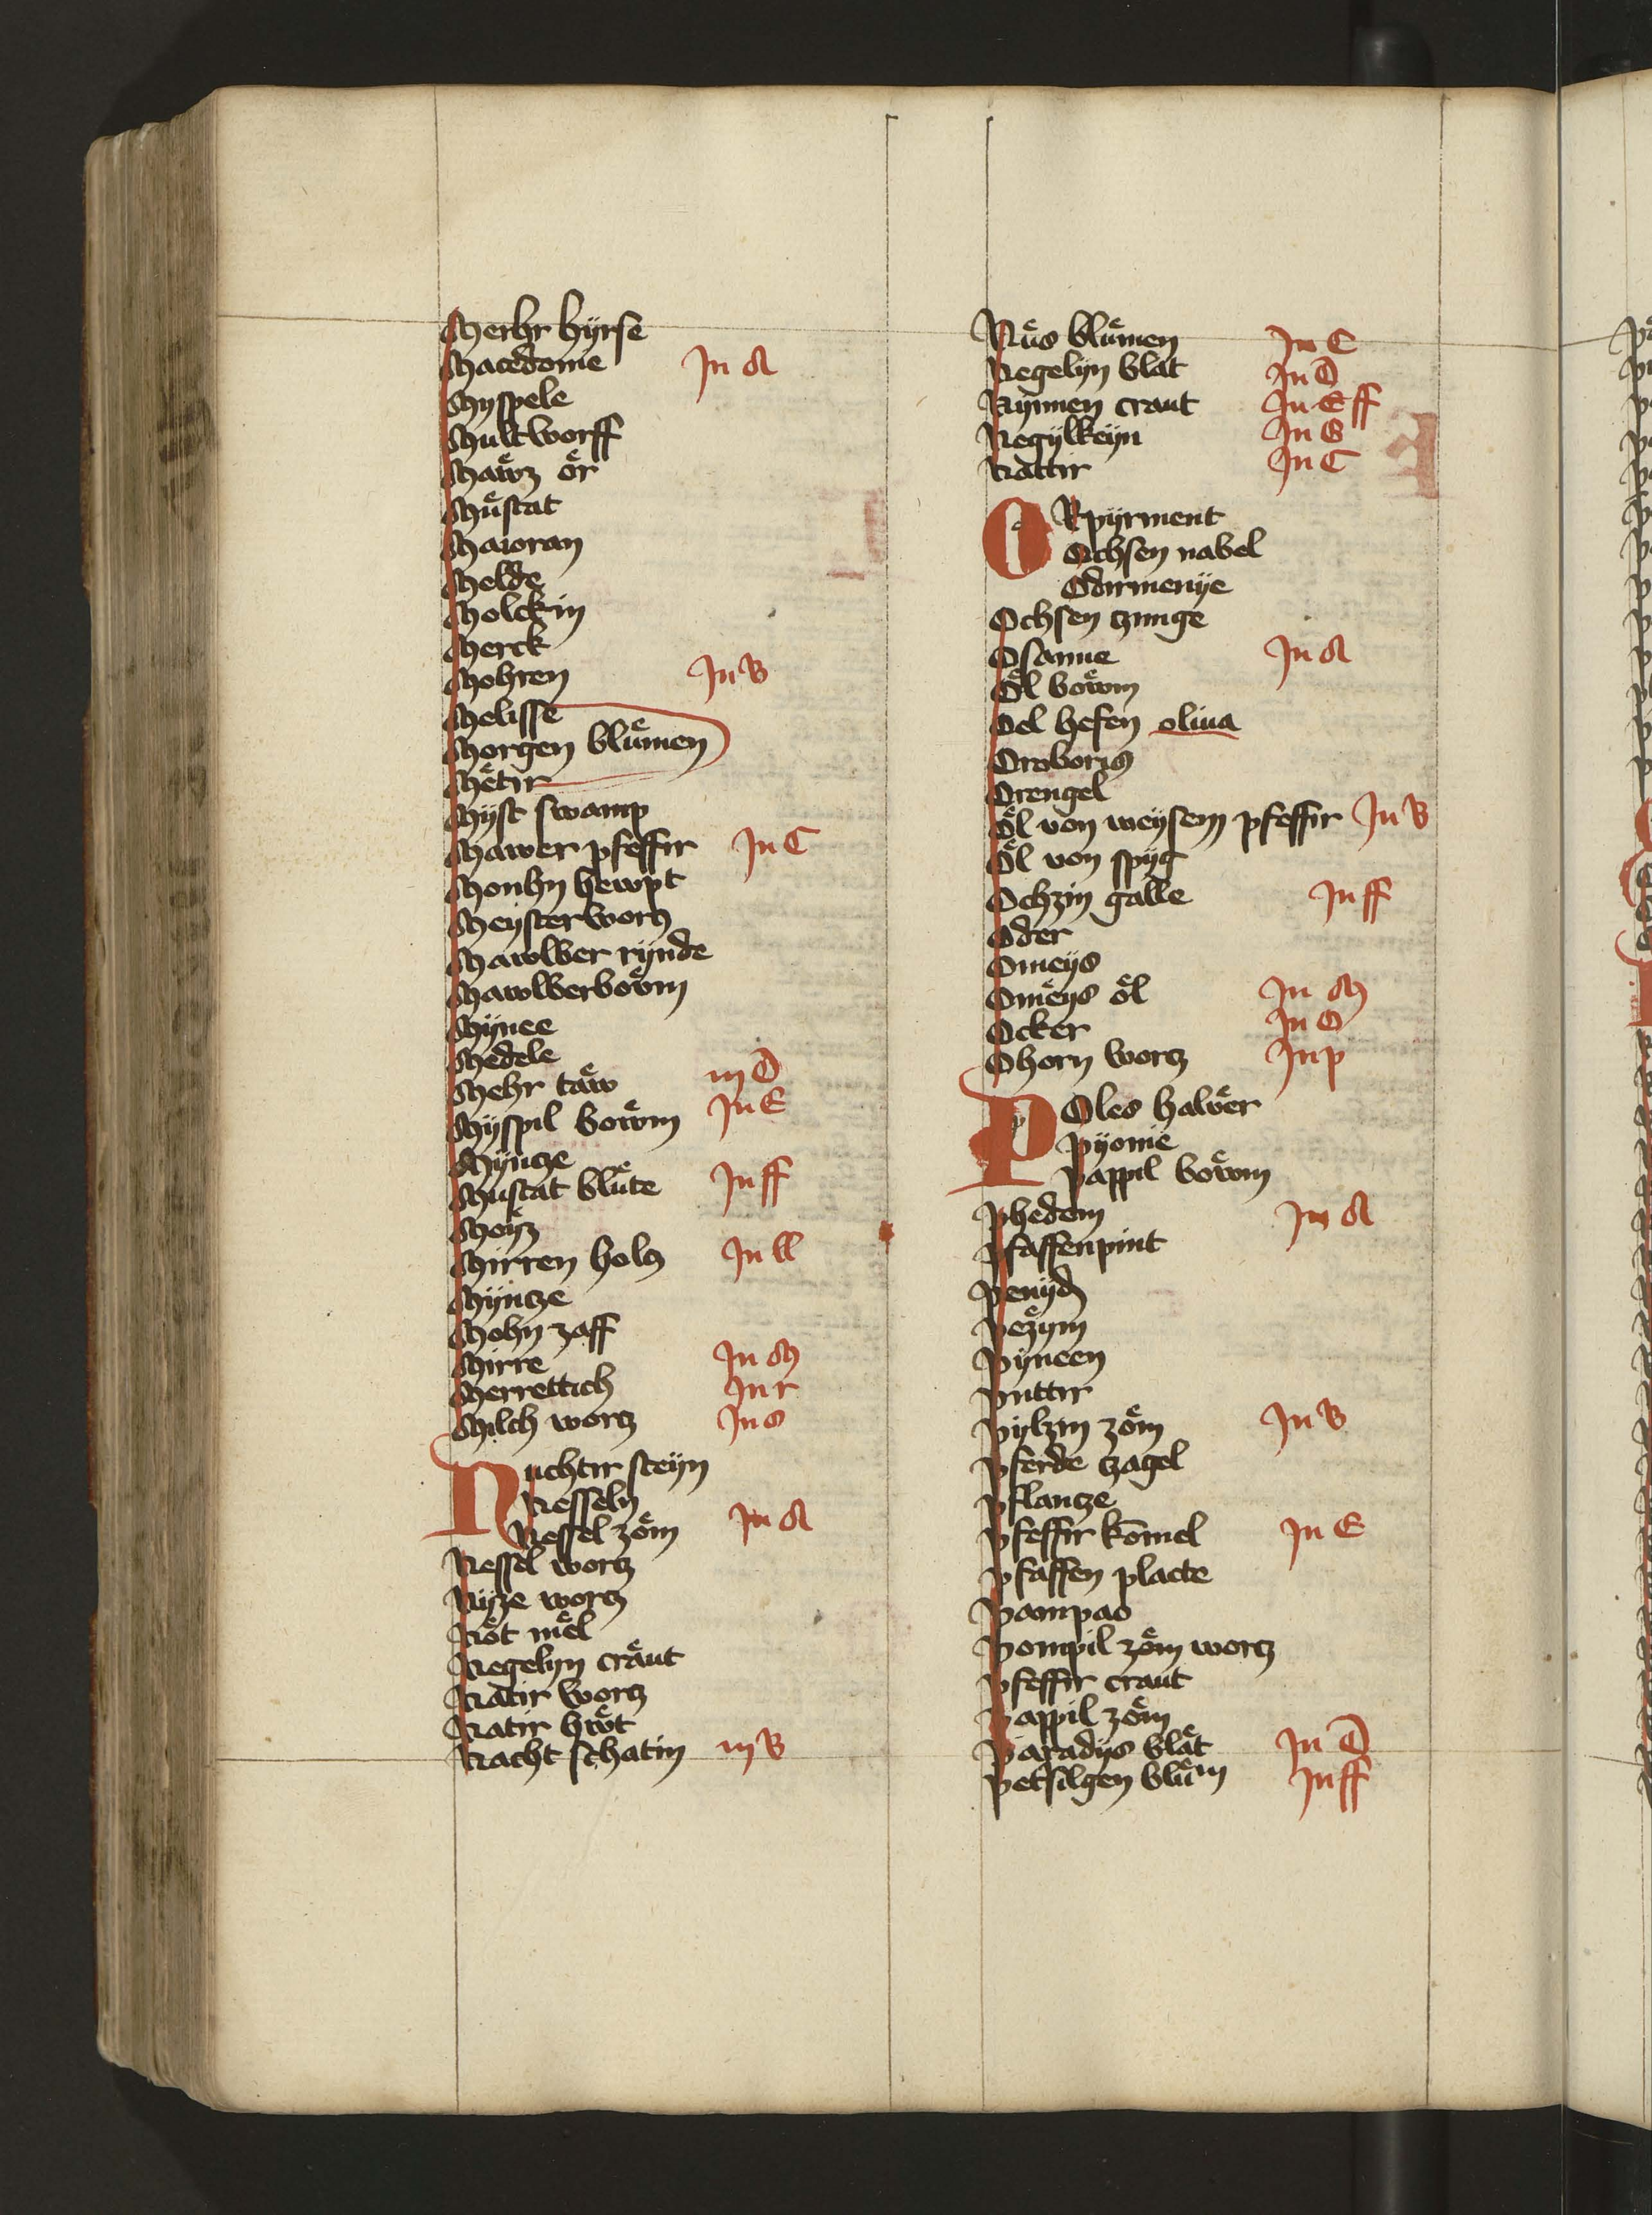 Merhr hÿrse
Macedonie In A
Myspele
Multworff
Maͤwz oͤr
Muͤstat
Maioran
Melde
Molckin
Merck
Mohren In B
Melisse
Morgen bluͤmen
Meͤtir
Mÿst swamp
Mawer pfeffir In C
Monhn hewpt
Meÿsterworcz
Mawlber rÿnde
Mawlberboͤwm
Mÿnee
Medele
Mehr taͤw in D
Mÿspil boͤwm In E
Mÿntze
Mustat bluͤte In ff
Moÿz
Mirren holcz In ll
Mÿntze
Mohn zaff
Mirre In M
Merrettich In r
Milch wortz In s
Nuchtir steÿn
Nesseln
Nessel zoͤm In A
Nessel wortz
Nÿze wortz
Noͤt meͤl
Negelyn craͤut
Natir wortz
Natir hwoͤt
Nacht schatin in B
Nuͤs bluͤmen In C
Negelyn blat In D
Nÿnnen craut In E ff
Negÿlkeÿn In G
Nattir In C
ORpÿrment
Ochsen nabel
Odirmenÿe
Ochsen zunge
Osanne In A
Oͤl boͤwm
Oel hefen oliua
Oraboris
Orengel
Oͤl von weÿsem pfeffir In B
Oͤl von spÿg
Ochzin galle In ff
Oder
Omeÿs
Omeͤÿs oͤl In M
Ocker In O
Ohorn wortz In p
POles halbͤer
Pÿonie
Pappil boͤwm
Phedem In A
Pfaffenpint
Penÿd
Pezÿm
Pÿneen
Puttir
Pÿlzin zoͤm In B
Pferde tzagel
Pflantze
Pfeffir komel In E
Pfaffen placte
Pampas
Pompil zoͤm wortz
Pfeffir craut
Pappil zoͤm
Paradÿs blaͤt In D
Petsilgen bluͤm In ff